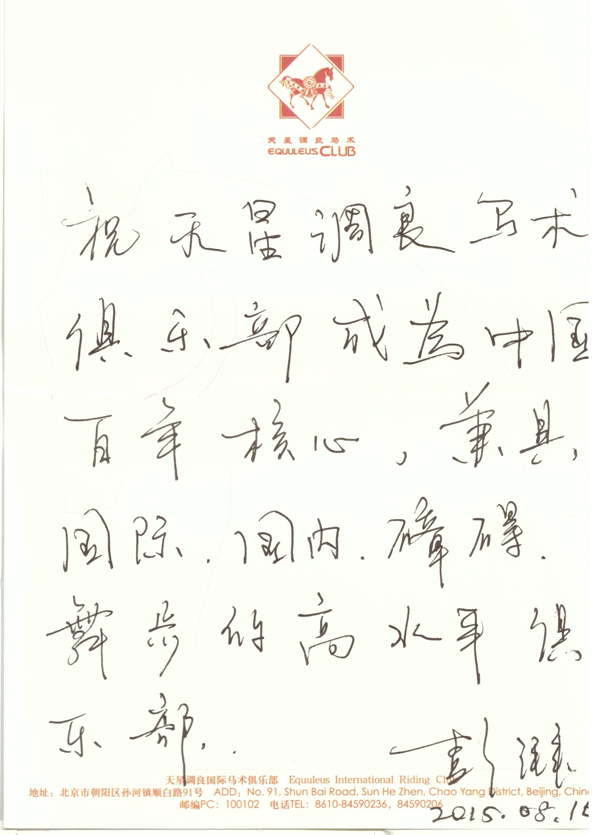 天星调良马术
EQUULEUS CLUB
祝天星调良马术
俱乐部成为中国
百年核心，兼具
国际、国内、障碍、
舞步的高水平俱
乐部。
彭
天星调良国际马术俱乐部 Equuleus International Riding Cl
地址：北京市朝阳区孙河镇顺白路91号 ADD：No. 91, Shun Bai Road, Sun He Zhen, Chao Yang District, Beijing, Chin
邮编PC：100102 电话TEL：8610-84590236, 84590206
2015.08.16